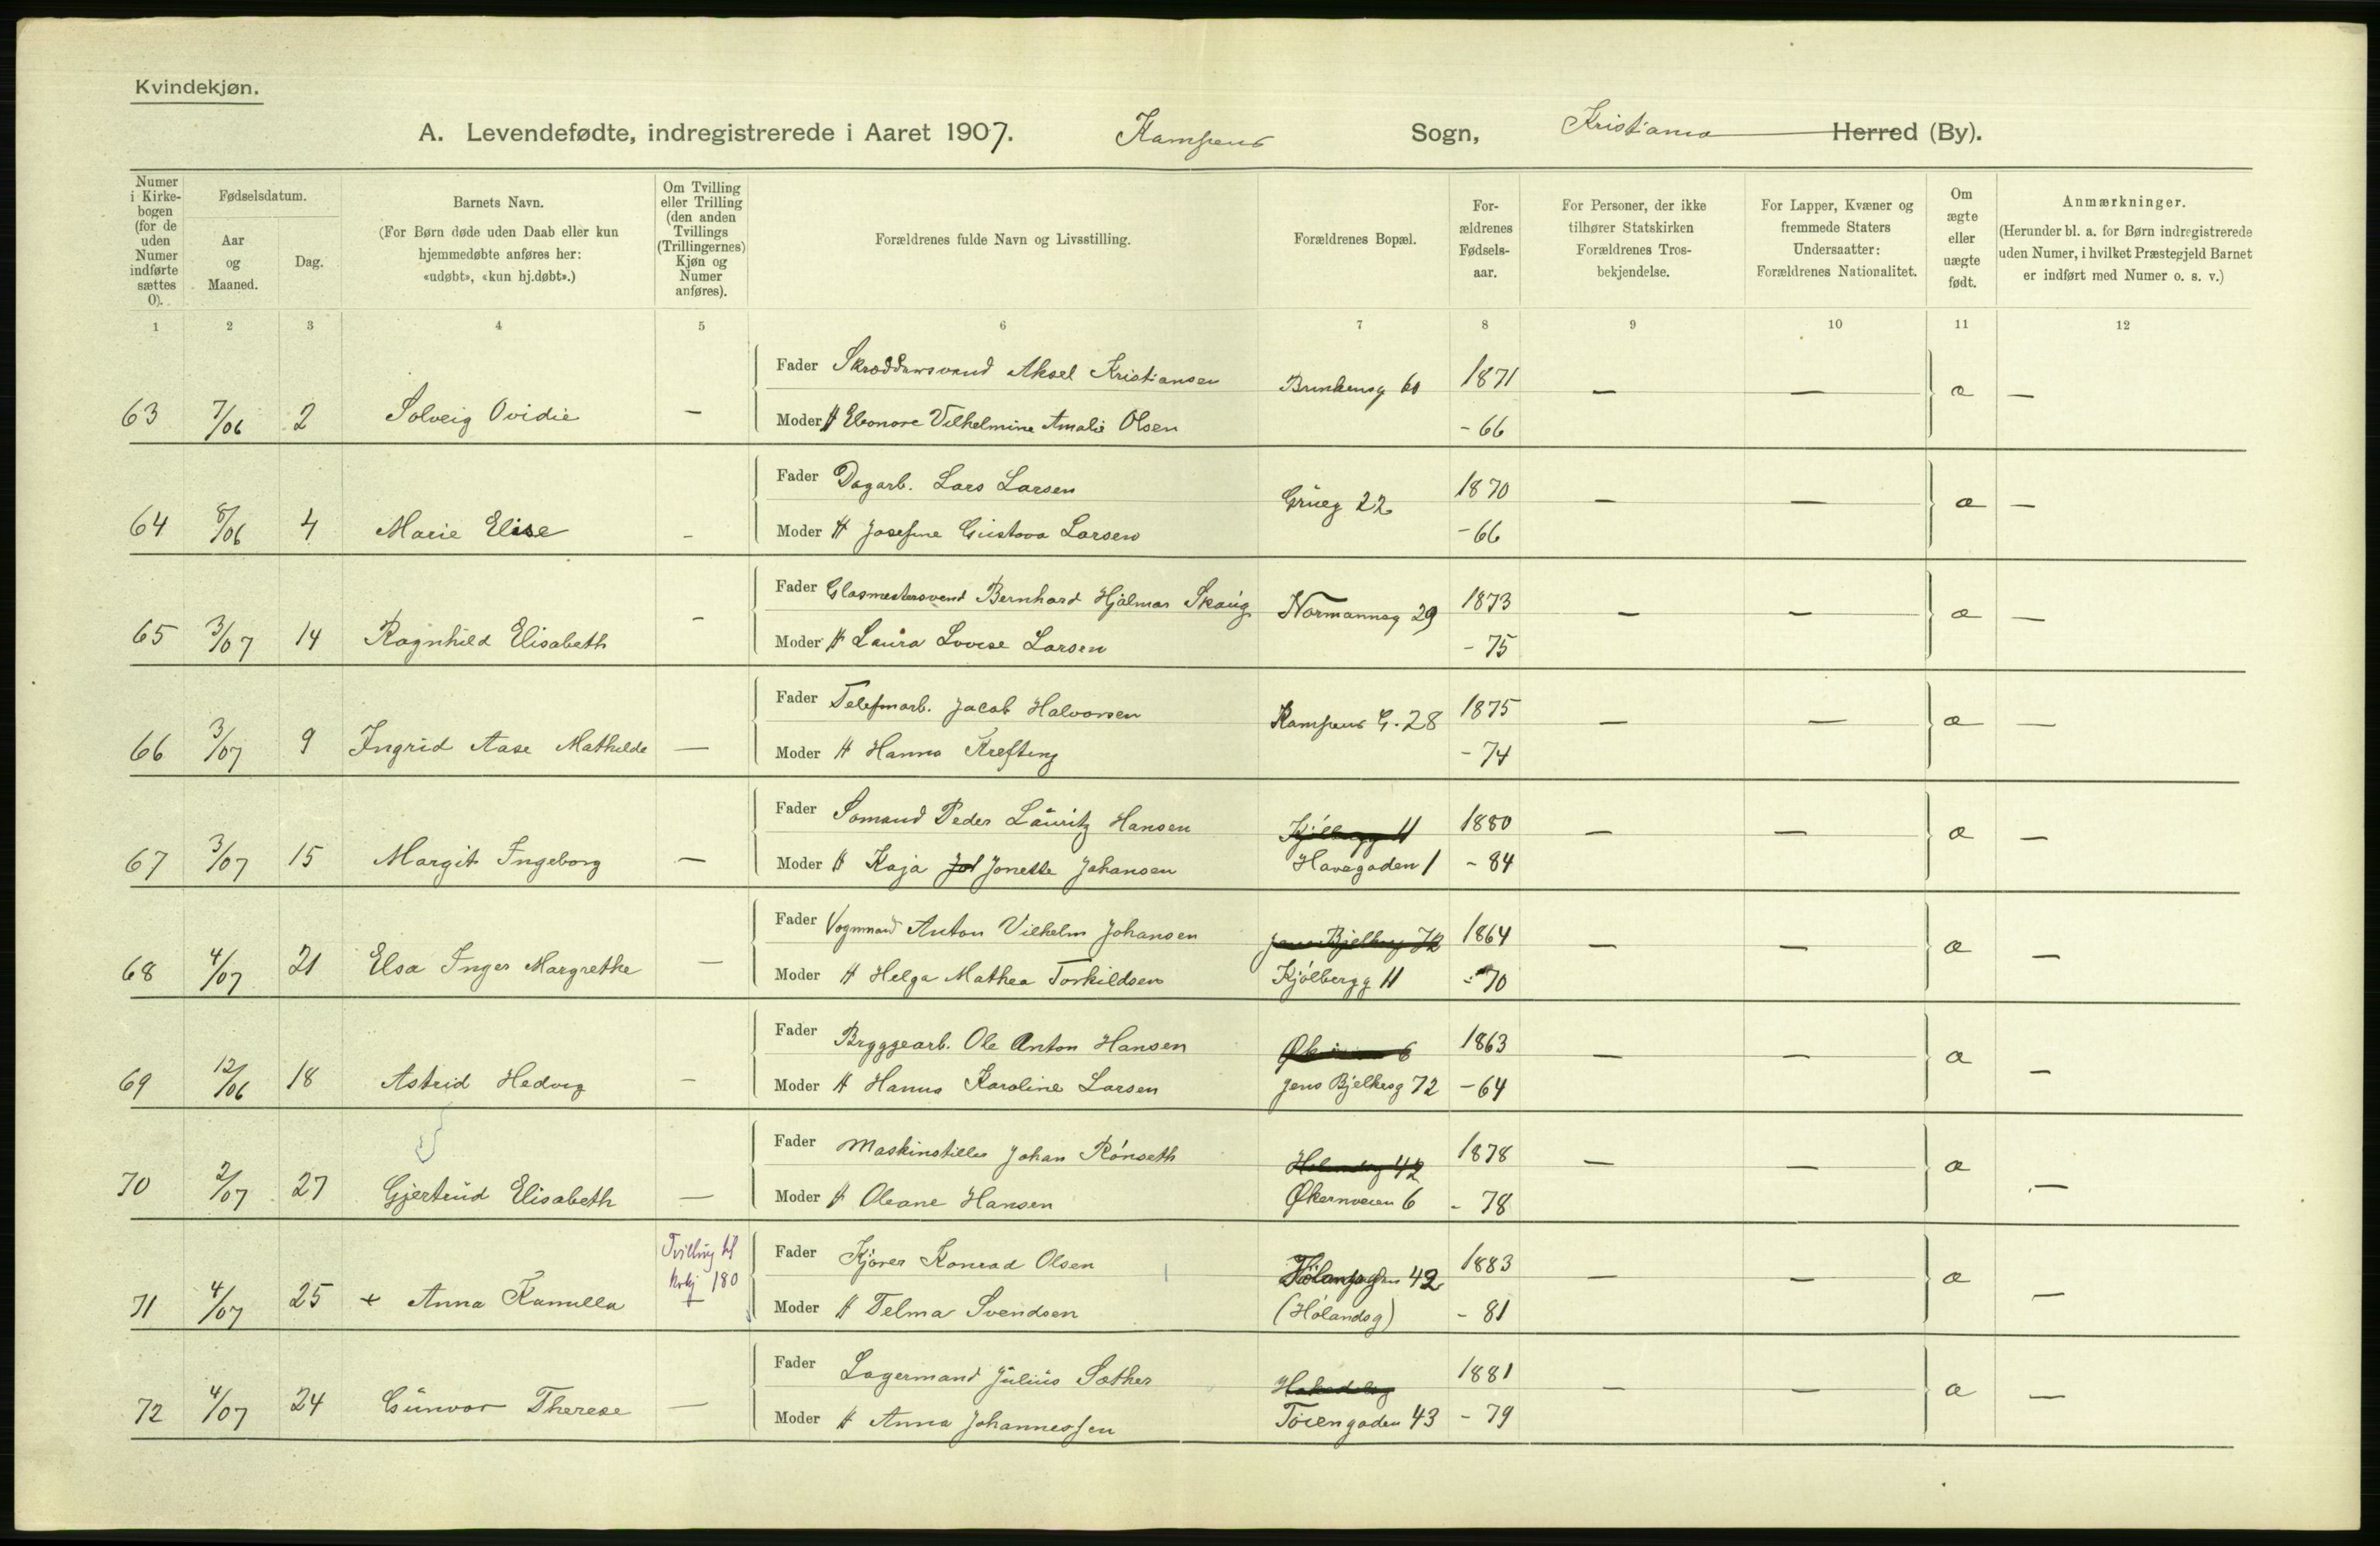 Kvindekjøn.
A. Levendefødte, indregistrerede i Aaret 1907. Kampens Sogn, Kristiania Herred (By).
Numer i Kirkebogen (for de uden Numer indførte sættes 0).
Fødselsdatum.
Aar og Maaned.
Dag.
Barnets Navn.
(For Børn døde uden Daab eller kun hjemmedøbte anføres her: «udøbt», «kun hj.døbt».)
Om Tvilling eller Trilling (den anden Tvillings (Trillingernes) Kjøn og Numer anføres).
Forældrenes fulde Navn og Livsstilling.
Forældrenes Bopæl.
Forældrenes Fødselsaar.
For Personer, der ikke tilhører Statskirken Forældrenes Trosbekjendelse.
For Lapper, Kvæner og fremmede Staters Undersaatter: Forældrenes Nationalitet.
Om ægte eller uægte født.
Anmærkninger.
(Herunder bl. a. for Børn indregistrerede uden Numer, i hvilket Præstegjeld Barnet er indført med Numer o. s. v.)
1 2 3 4 5 6 7 8 9 10 11 12
Fader Skræddersvend Aksel Kristiansen Brinkensg 60 1871 — — æ —
63 7/06 2 Solveig Ovidie — Moder H Eleonore Vilhelmine Amalie Olsen - 66
Fader Dagarb. Lars Larsen Grüeg 22 1870 — — æ —
64 8/06 4 Marie Elise - Moder H Josefine Gustava Larsen - 66
Fader Glasmestersvend Bernhard Hjalmar Skaug Normannsg 29 1873 — — æ —
65 3/07 14 Ragnhild Elisabeth - Moder H Laura Lovise Larsen - 75
Fader Telefonarb. Jacob Halvorsen Kampens G. 28 1875 — — æ —
66 3/07 9 Ingrid Aase Mathilde — Moder H Hanna Krefting - 74
Fader Sømand Peder Lauritz Hansen Kjølbergg 11 1880 — — æ —
67 3/07 15 Margit Ingeborg — Moder H Kaja Jonette Johansen Havegaden 1 - 84
Fader Vognmand Anton Vilhelm Johansen Jens Bjelkesg 72 1864 — — æ —
68 4/07 21 Elsa Inger Margrethe — Moder H Helga Mathea Torkildsen Kjølbergg 11 - 70
Fader Bryggearb. Ole Anton Hansen 6 1863 — — æ —
69 12/06 18 Astrid Hedvig — Moder H Hanna Karoline Larsen Jens Bjelkesg 72 - 64
Fader Maskinstiller Johan Rønseth 42 1878 — — æ —
70 2/07 27 Gjertrud Elisabeth — Moder H Oleane Hansen Økernveien 6 - 78
Tvilling til
Fader Kjører Konrad Olsen 42 1883 — — æ —
Mkj 180
71 4/07 25 + Anna Kamilla Moder H Telma Svendsen (Hølandsg) - 81
Fader Lagermand Julius Sæther 1881 — — æ —
72 4/07 24 Gunvor Therese — Moder H Anna Johannessen Tøiengaden 43 - 79